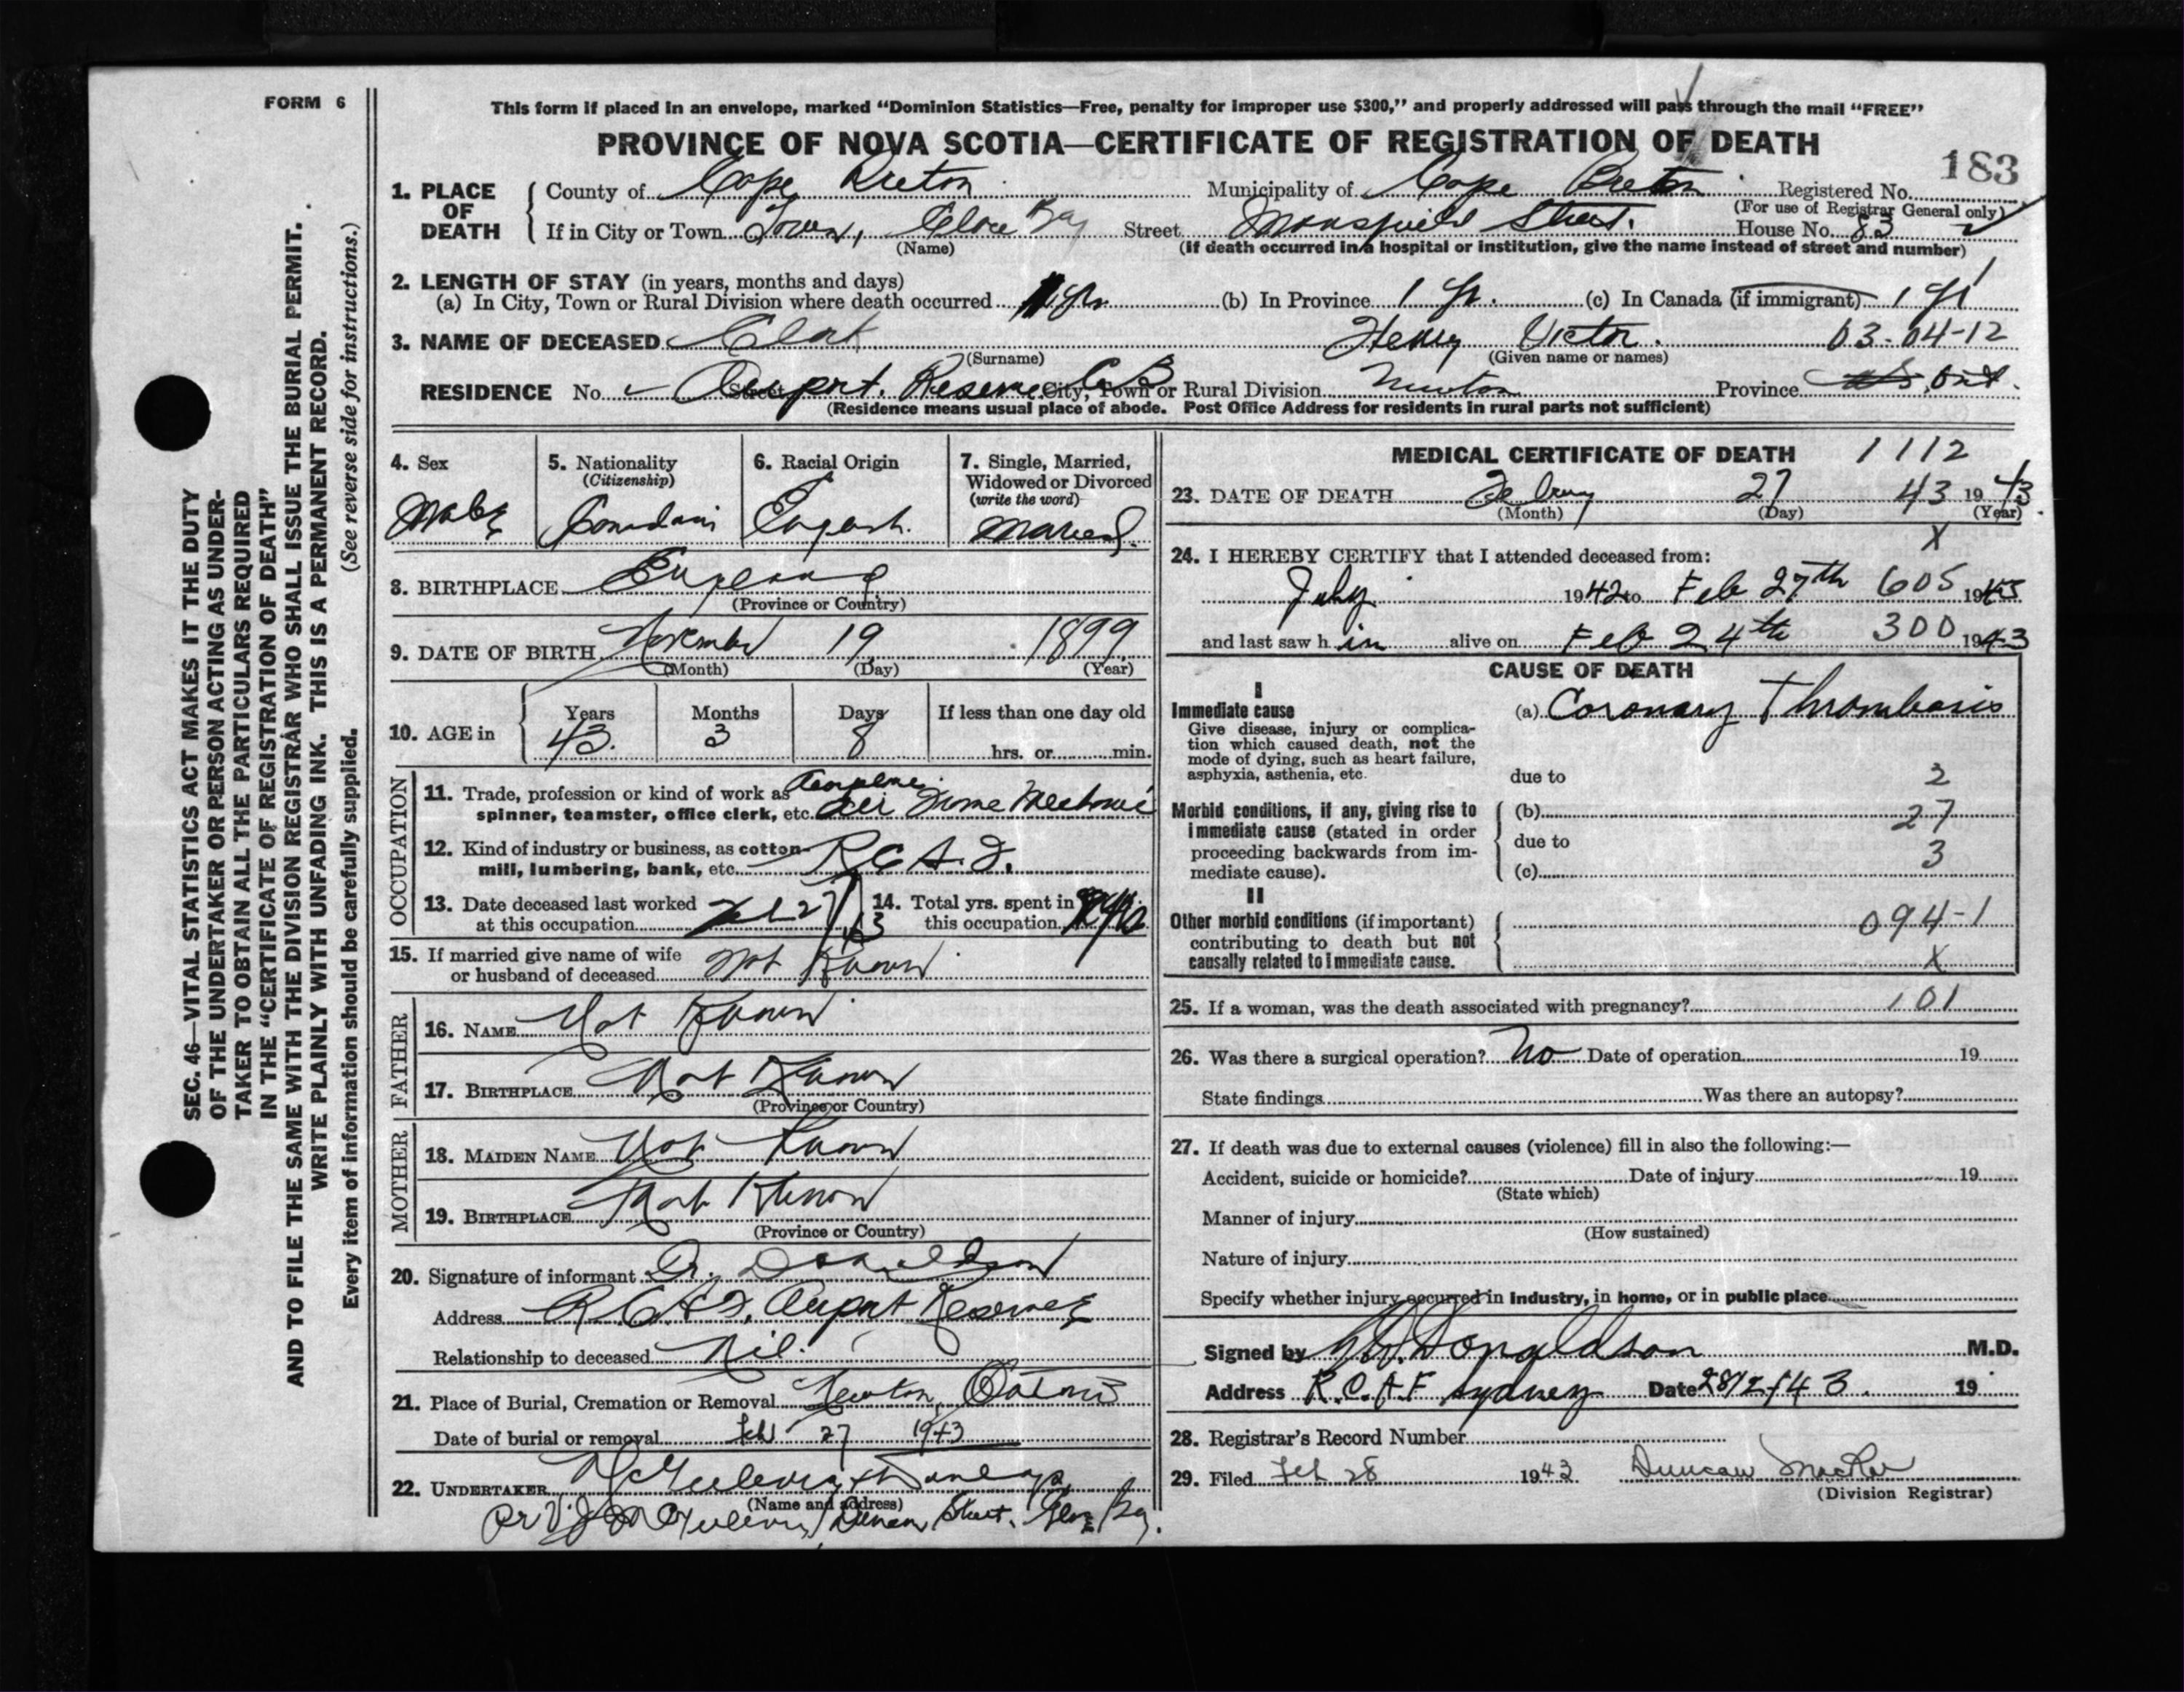 FORM 6
This form if placed in an envelope, marked “Dominion Statistics—Free, penalty for improper use $300,” and properly addressed will pass through the mail “FREE”
PROVINCE OF NOVA SCOTIA—CERTIFICATE OF REGISTRATION OF DEATH
183
1. PLACE OF DEATH
County of Cape Breton Municipality of Cape Breton Registered No.
(For use of Registrar General only)
If in City or Town Town, Glace Bay Street Mansfield Street. House No. 83
(Name) (If death occurred in a hospital or institution, give the name instead of street and number)
2. LENGTH OF STAY (in years, months and days)
(a) In City, Town or Rural Division where death occurred 1 yr (b) In Province 1 yr. (c) In Canada (if immigrant) 1 yr
3. NAME OF DECEASED Clark Henry Victor. 03-04-12
(Surname) (Given name or names)
RESIDENCE No. Street Airport, Reserve C B City, Town or Rural Division Newton Province Ont.
(Residence means usual place of abode. Post Office Address for residents in rural parts not sufficient)
4. Sex
Male
5. Nationality
(Citizenship)
Canadian
6. Racial Origin
English
7. Single, Married,
Widowed or Divorced
(write the word)
Married
8. BIRTHPLACE England
(Province or Country)
9. DATE OF BIRTH November 19 1899
(Month) (Day) (Year)
10. AGE in
Years Months Days If less than one day old
43. 3 8 hrs. or min.
OCCUPATION
11. Trade, profession or kind of work as Aeroplane
spinner, teamster, office clerk, etc. Air Frame Mechanic
12. Kind of industry or business, as cotton-
mill, lumbering, bank, etc. R C A. F.
13. Date deceased last worked
at this occupation Feb 27/43
14. Total yrs. spent in
this occupation
15. If married give name of wife
or husband of deceased Not Known
FATHER
16. NAME Not Known
17. BIRTHPLACE Not Known
(Province or Country)
MOTHER
18. MAIDEN NAME Not Known
19. BIRTHPLACE Not Known
(Province or Country)
20. Signature of informant Dr. Donaldson
Address R C A F, Airport Reserve
Relationship to deceased Nil.
21. Place of Burial, Cremation or Removal Newton, Ontario
Date of burial or removal Feb 27 1943
22. UNDERTAKER
(Name and address)
Per V. J. Street, Glace Bay.
MEDICAL CERTIFICATE OF DEATH 1112
23. DATE OF DEATH 27 43 1943
(Month) (Day) (Year)
X
24. I HEREBY CERTIFY that I attended deceased from:
July 1942 to Feb 27th 605 1943
and last saw h im alive on Feb 24th 300 1943
CAUSE OF DEATH
I
Immediate cause
Give disease, injury or complica-
tion which caused death, not the
mode of dying, such as heart failure,
asphyxia, asthenia, etc.
(a) Coronary Thrombosis
due to 2
Morbid conditions, if any, giving rise to
immediate cause (stated in order
proceeding backwards from im-
mediate cause).
(b) 27
due to
(c) 3
II
Other morbid conditions (if important)
contributing to death but not
causally related to immediate cause.
094-1
X
25. If a woman, was the death associated with pregnancy? 101
26. Was there a surgical operation? No Date of operation 19
State findings Was there an autopsy?
27. If death was due to external causes (violence) fill in also the following:—
Accident, suicide or homicide? Date of injury 19
(State which)
Manner of injury
(How sustained)
Nature of injury
Specify whether injury occurred in industry, in home, or in public place
Signed by Donaldson M.D.
Address R.C.A.F Sydney Date 28/2/43. 19
28. Registrar’s Record Number
29. Filed Feb 28 1943 Duncan MacRae
(Division Registrar)
SEC. 46—VITAL STATISTICS ACT MAKES IT THE DUTY
OF THE UNDERTAKER OR PERSON ACTING AS UNDER-
TAKER TO OBTAIN ALL THE PARTICULARS REQUIRED
IN THE “CERTIFICATE OF REGISTRATION OF DEATH”
AND TO FILE THE SAME WITH THE DIVISION REGISTRAR WHO SHALL ISSUE THE BURIAL PERMIT.
WRITE PLAINLY WITH UNFADING INK. THIS IS A PERMANENT RECORD.
Every item of information should be carefully supplied. (See reverse side for instructions.)